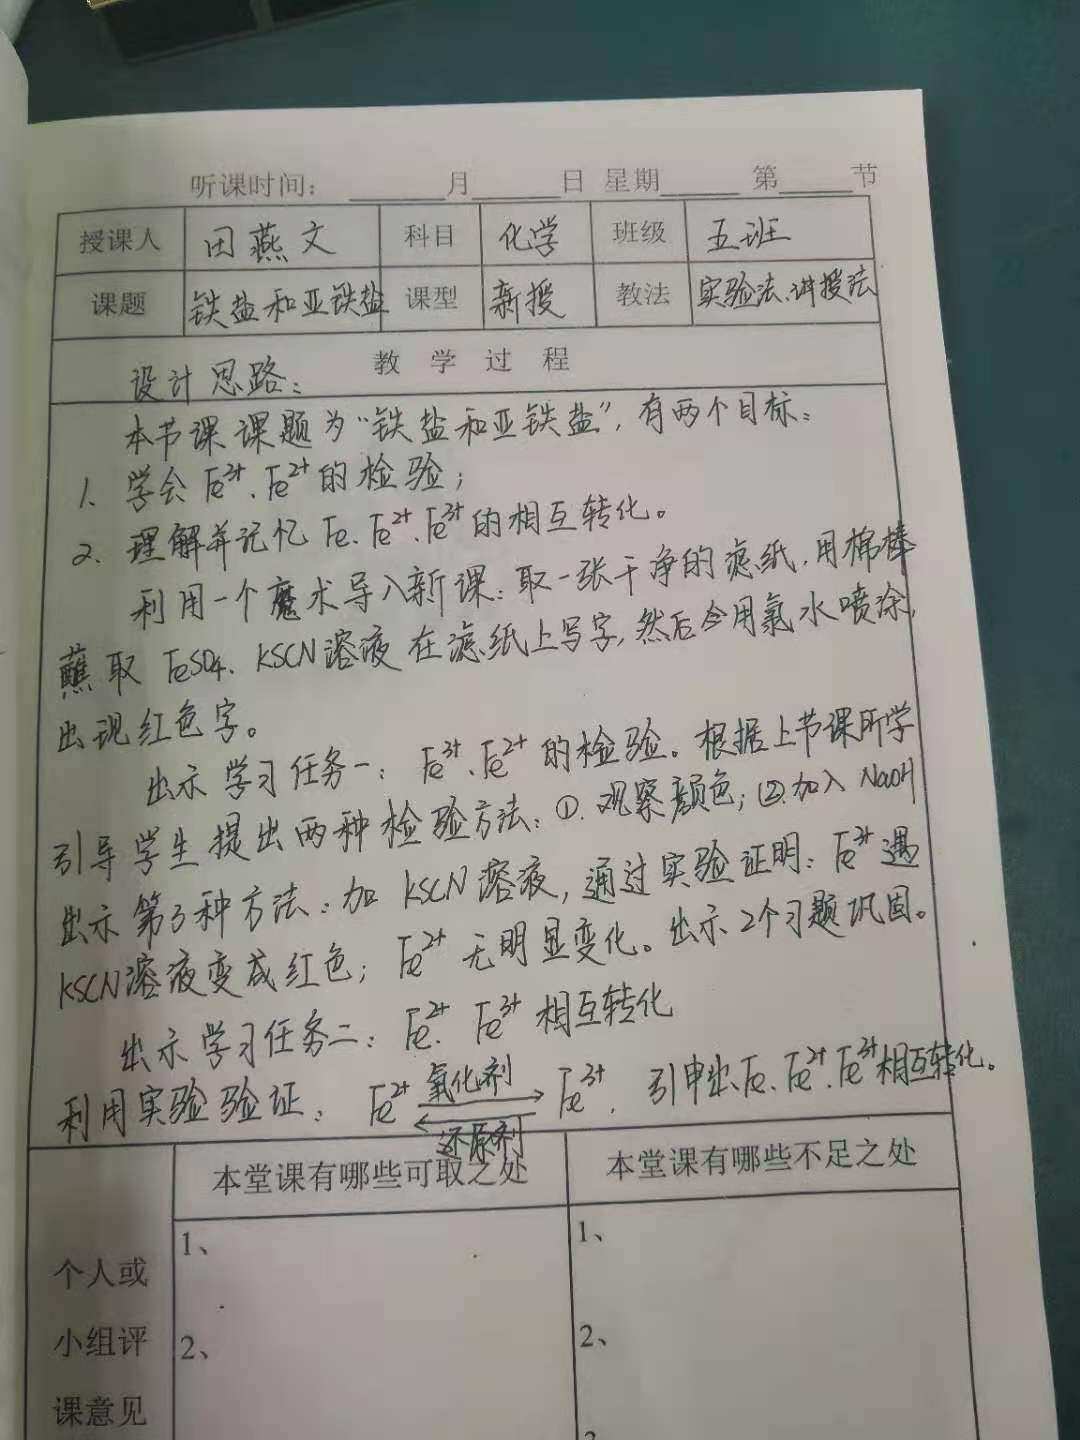 听课时间：______月______日 星期______ 第______节
授课人 田燕文 科目 化学 班级 五班
课题 铁盐和亚铁盐 课型 新授 教法 实验法、讲授法
教 学 过 程
设计思路：
本节课课题为“铁盐和亚铁盐”，有两个目标：
1. 学会Fe³⁺、Fe²⁺的检验；
2. 理解并记忆Fe、Fe²⁺、Fe³⁺的相互转化。
利用一个魔术导入新课：取一张干净的滤纸，用棉棒
蘸取FeSO₄、KSCN溶液在滤纸上写字，然后令用氯水喷涂，
出现红色字。
出示学习任务一：Fe³⁺、Fe²⁺的检验。根据上节课所学
引导学生提出两种检验方法：①.观察颜色；②.加入NaOH
出示第3种方法：加KSCN溶液，通过实验证明：Fe³⁺遇
KSCN溶液变成红色；Fe²⁺无明显变化。出示2个习题巩固。
出示学习任务二：Fe²⁺、Fe³⁺相互转化
利用实验验证：Fe²⁺ 氧化剂⇌还原剂 Fe³⁺. 引申出Fe、Fe²⁺、Fe³⁺相互转化。
本堂课有哪些可取之处 本堂课有哪些不足之处
1、 1、
个人或
小组评
课意见
2、 2、